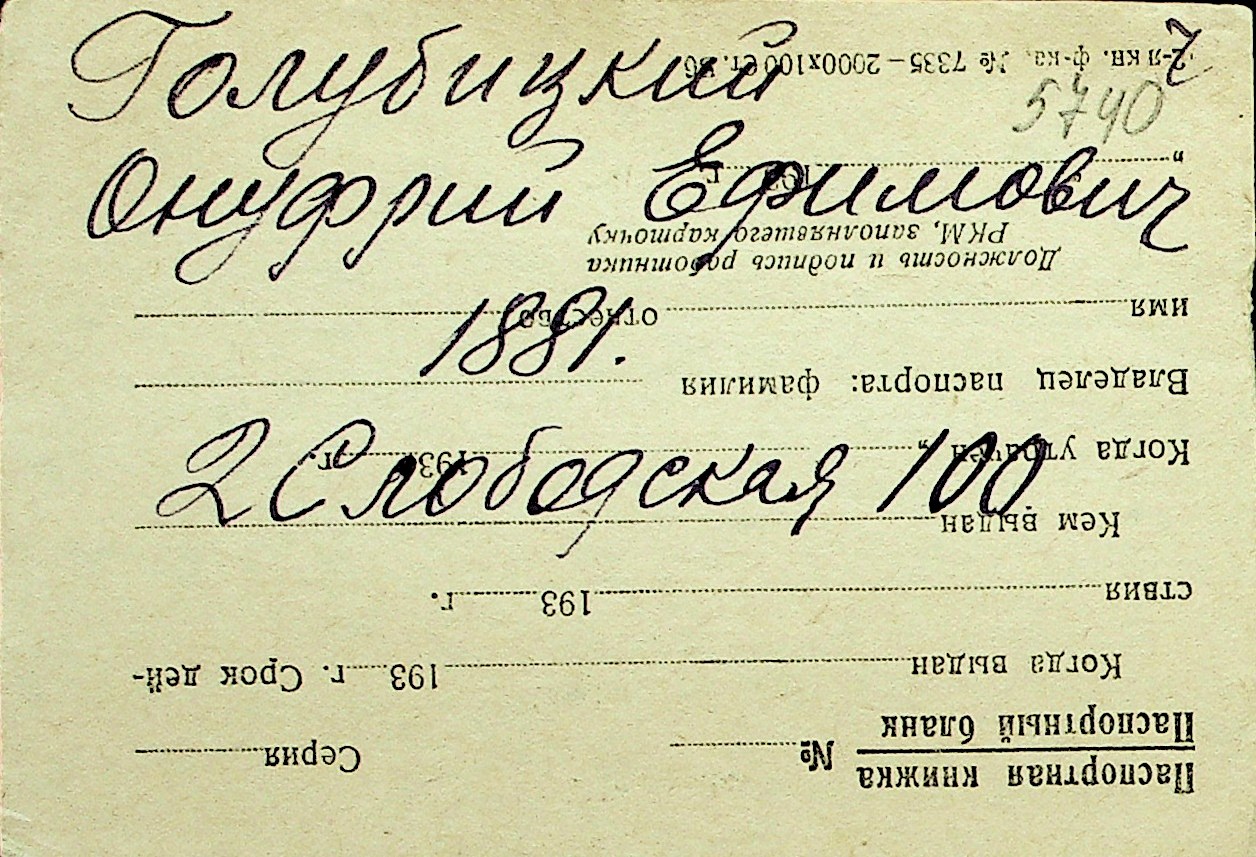 Голубицкий
7
5740
Онуфрий Ефимович
1881.
2 Слободская 100
Паспортная книжка
Паспортный бланк
№ Серия
Когда выдан 193 г. Срок дей-
ствия 193 г.
Кем выдан
Когда утрачен „ 193 г.
Владелец паспорта: фамилия
имя отчество
Должность и подпись работника
РКМ, заполнявшего карточку
„ 193 г.
2-я кв. ф-ка. № 7335—2000х100 Ст. Б6